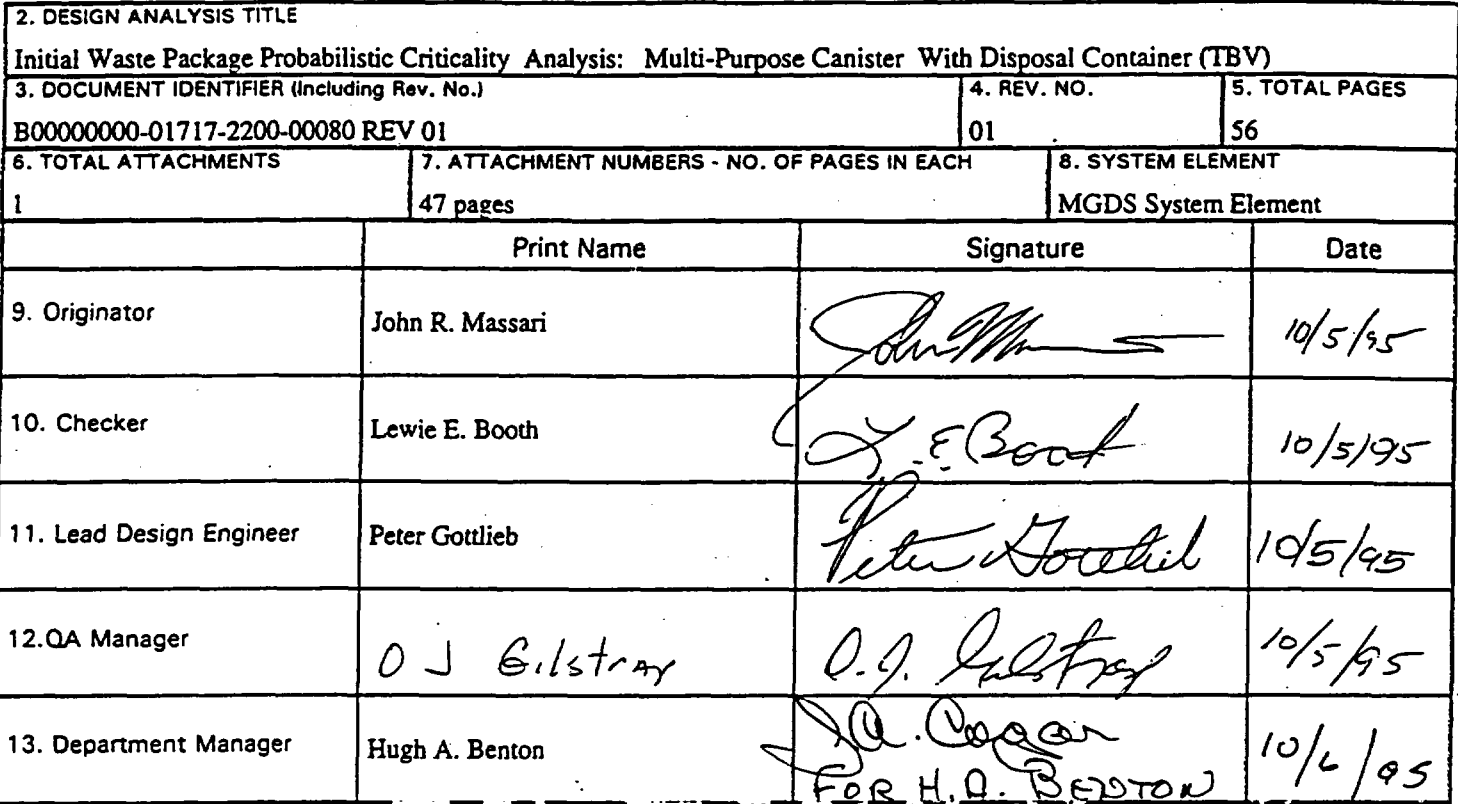 2. DESIGN ANALYSIS TITLE
Initial Waste Package Probabilistic Criticality Analysis: Multi-Purpose Canister With Disposal Container (TBV)
3. DOCUMENT IDENTIFIER (Including Rev. No.) 4. REV. NO. 5. TOTAL PAGES
B00000000-01717-2200-00080 REV 01 01 56
6. TOTAL ATTACHMENTS 7. ATTACHMENT NUMBERS - NO. OF PAGES IN EACH 8. SYSTEM ELEMENT
1 47 pages MGDS System Element
Print Name Signature Date
9. Originator John R. Massari 10/5/95
10. Checker Lewie E. Booth L. E Booth 10/5/95
11. Lead Design Engineer Peter Gottlieb Peter Gottlieb 10/5/95
12.QA Manager O J Gilstrap O.J. Gilstrap 10/5/95
13. Department Manager Hugh A. Benton 10/6/95
FOR H.A. BENTON